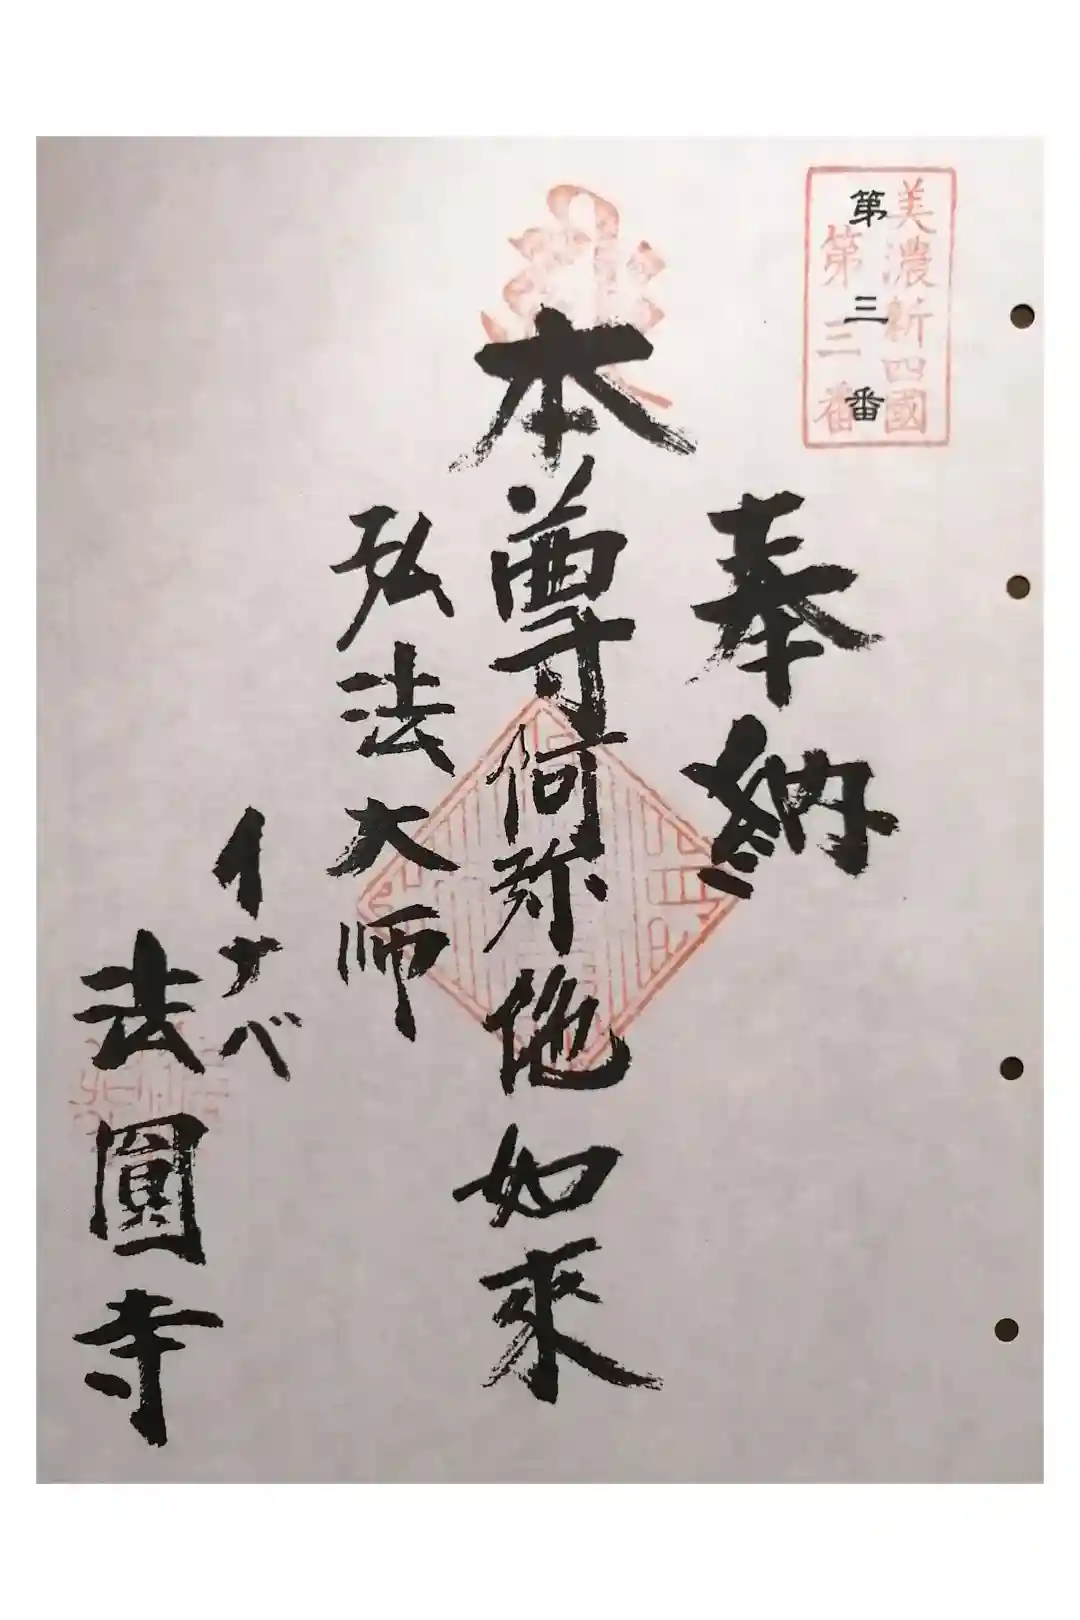 美濃新四國
第三番
第三番
奉納
本尊何弥他如來
弘法大师
イナベ
法圓寺